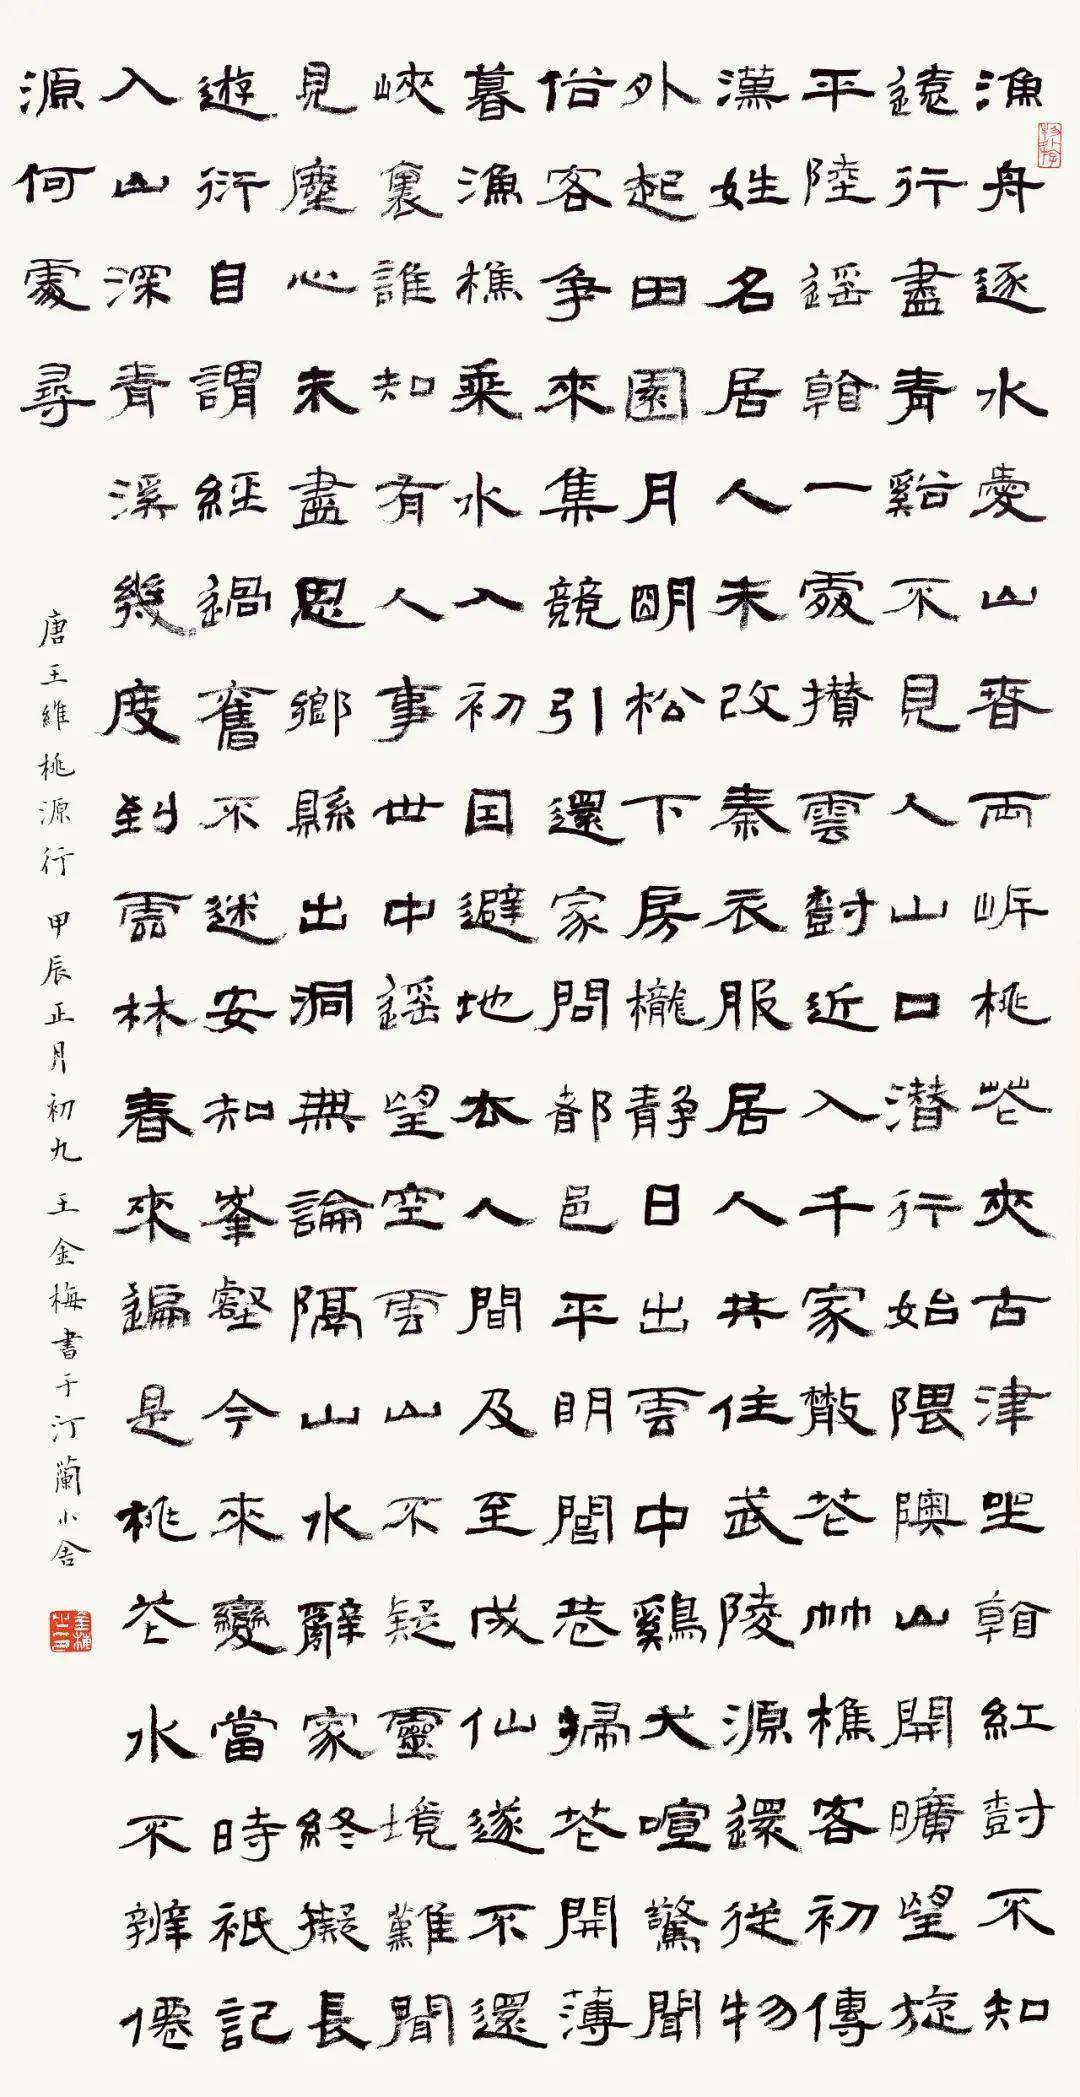 漁舟逐水愛山春兩岸桃花夾古津坐看紅樹不知
遠行盡青谿不見人山口潛行始隈隩山開曠望旋
平陸遥看一處攢雲樹近入千家散花竹樵客初傳
漢姓名居人未改秦衣服居人共住武陵源還從物
外起田園月明松下房櫳靜日出雲中鷄犬喧驚聞
俗客爭來集競引還家問都邑平明閭巷掃花開薄
暮漁樵乘水入初因避地去人間及至成仙遂不還
峽裏誰知有人事世中遥望空雲山不疑靈境難聞
見塵心未盡思鄉縣出洞無論隔山水辭家終擬長
遊衍自謂經過舊不迷安知峯壑今來變當時衹記
入山深青溪幾度到雲林春來遍是桃花水不辨僊
源何處尋
唐王維桃源行 甲辰正月初九 王金梅書于汀蘭小舍